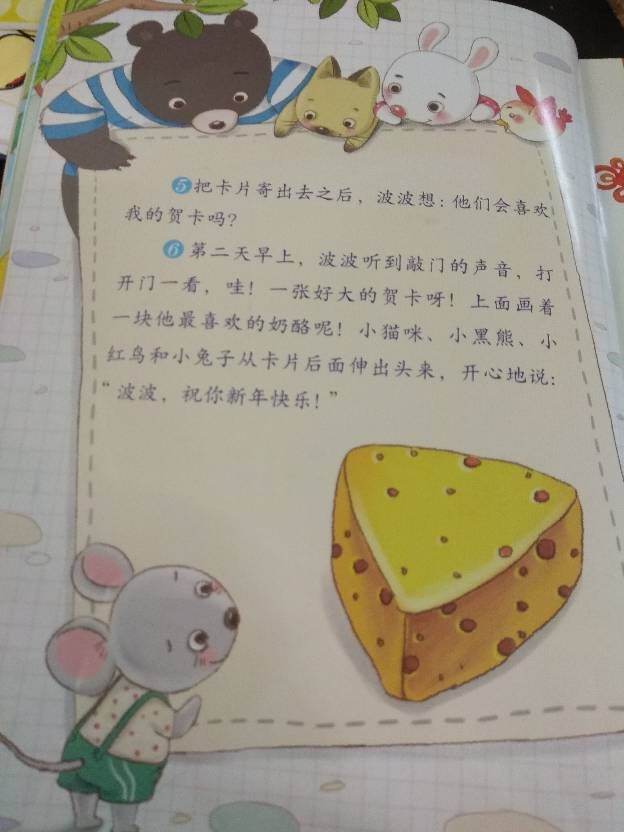 5把卡片寄出去之后，波波想：他们会喜欢
我的贺卡吗？
6第二天早上，波波听到敲门的声音，打
开门一看，哇！一张好大的贺卡呀！上面画着
一块他最喜欢的奶酪呢！小猫咪、小黑熊、小
红鸟和小兔子从卡片后面伸出头来，开心地说：
“波波，祝你新年快乐！”